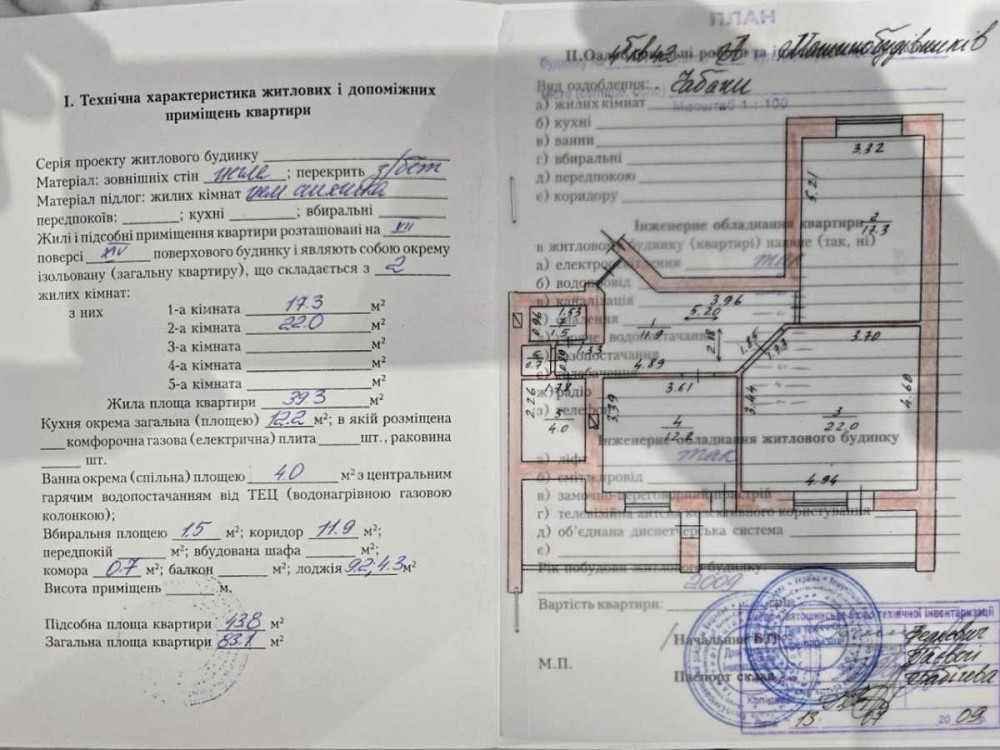 I. Технічна характеристика житлових і допоміжних
приміщень квартири
Серія проекту житлового будинку
Матеріал: зовнішніх стін цегла ; перекрить з/бет
Матеріал підлог: жилих кімнат
передпокоїв: ; кухні ; вбиральні
Жилі і підсобні приміщення квартири розташовані на XII
поверсі XIV поверхового будинку і являють собою окрему
ізольовану (загальну квартиру), що складається з 2
жилих кімнат:
з них
1-а кімната 17.3 м²
2-а кімната 22.0 м²
3-а кімната м²
4-а кімната м²
5-а кімната м²
Жила площа квартири 39.3 м²
Кухня окрема загальна (площею) 12.2 м²; в якій розміщена
комфорочна газова (електрична) плита шт., раковина
шт.
Ванна окрема (спільна) площею 4.0 м² з центральним
гарячим водопостачанням від ТЕЦ (водонагрівною газовою
колонкою);
Вбиральня площею 1.5 м²; коридор 11.9 м²;
передпокій м²; вбудована шафа м²;
комора 0.7 м²; балкон м²; лоджія 9.2; 4.3 м²
Висота приміщень м.
Підсобна площа квартири 43.8 м²
Загальна площа квартири 83.1 м²
ПЛАН
Машинобудівників
Чабани
Масштаб 1 : 100
Вид оздоблення:
а) жилих кімнат
б) кухні
в) ванни
г) вбиральні
д) передпокою
є) коридору
Інженерне обладнання квартири
в житловому будинку (квартирі) наявне (так, ні)
а) електроосвітлення так
б) водопровід
в) каналізація
ж) радіо
Інженерне обладнання житлового будинку
а) ліфт так
б) сміттєпровід
в) замочно-переговорний пристрій
г) телевізійна антена колективного користування
д) об'єднана диспетчерська система
є)
Рік побудови житлового будинку:
2009
Вартість квартири: грн.
Начальник БТІ
М.П.
Паспорт склав
3.32
5.21
2
17.3
3.96
5.20
1
11.9
2.18
1.85
1.73
3.70
4.60
1.53
0.96
1.5
1.33
0.7
4.89
1.78
2.26
5
4.0
3.39
3.61
4
3.44
3
22.0
4.94
технічної інвентаризації
13 07 2009